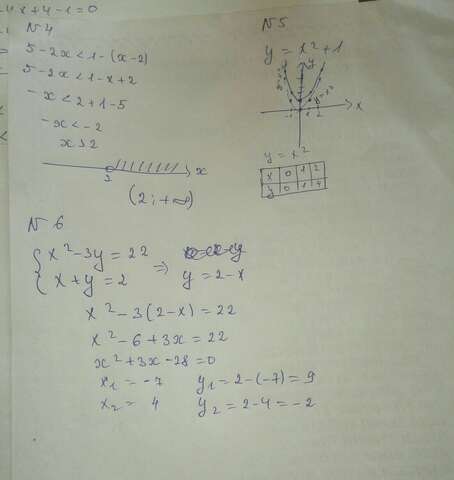 -4x+4-1=0
N4
5-2x<1-(x-2)
5-2x<1-x+2
-x<2+1-5
-x<-2
x>2
2 x
(2; +∞)
N5
y = x²+1
y
x
y = x²
x 0 1 2
y 0 1 4
N6
{ x²-3y=22
{ x+y=2 => y=2-x
x²-3(2-x)=22
x²-6+3x=22
x²+3x-28=0
x₁ = -7 y₁=2-(-7)=9
x₂ = 4 y₂=2-4=-2